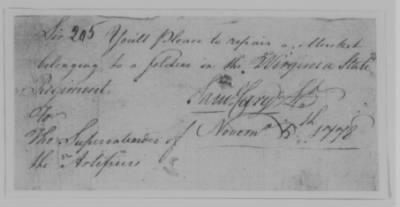 Sir 205 You'll Please to repair a Musket
belonging to a soldier in the 2 Virginia State
Regiment
To Novemr 5th 1778
The Superintender of
the Artificers